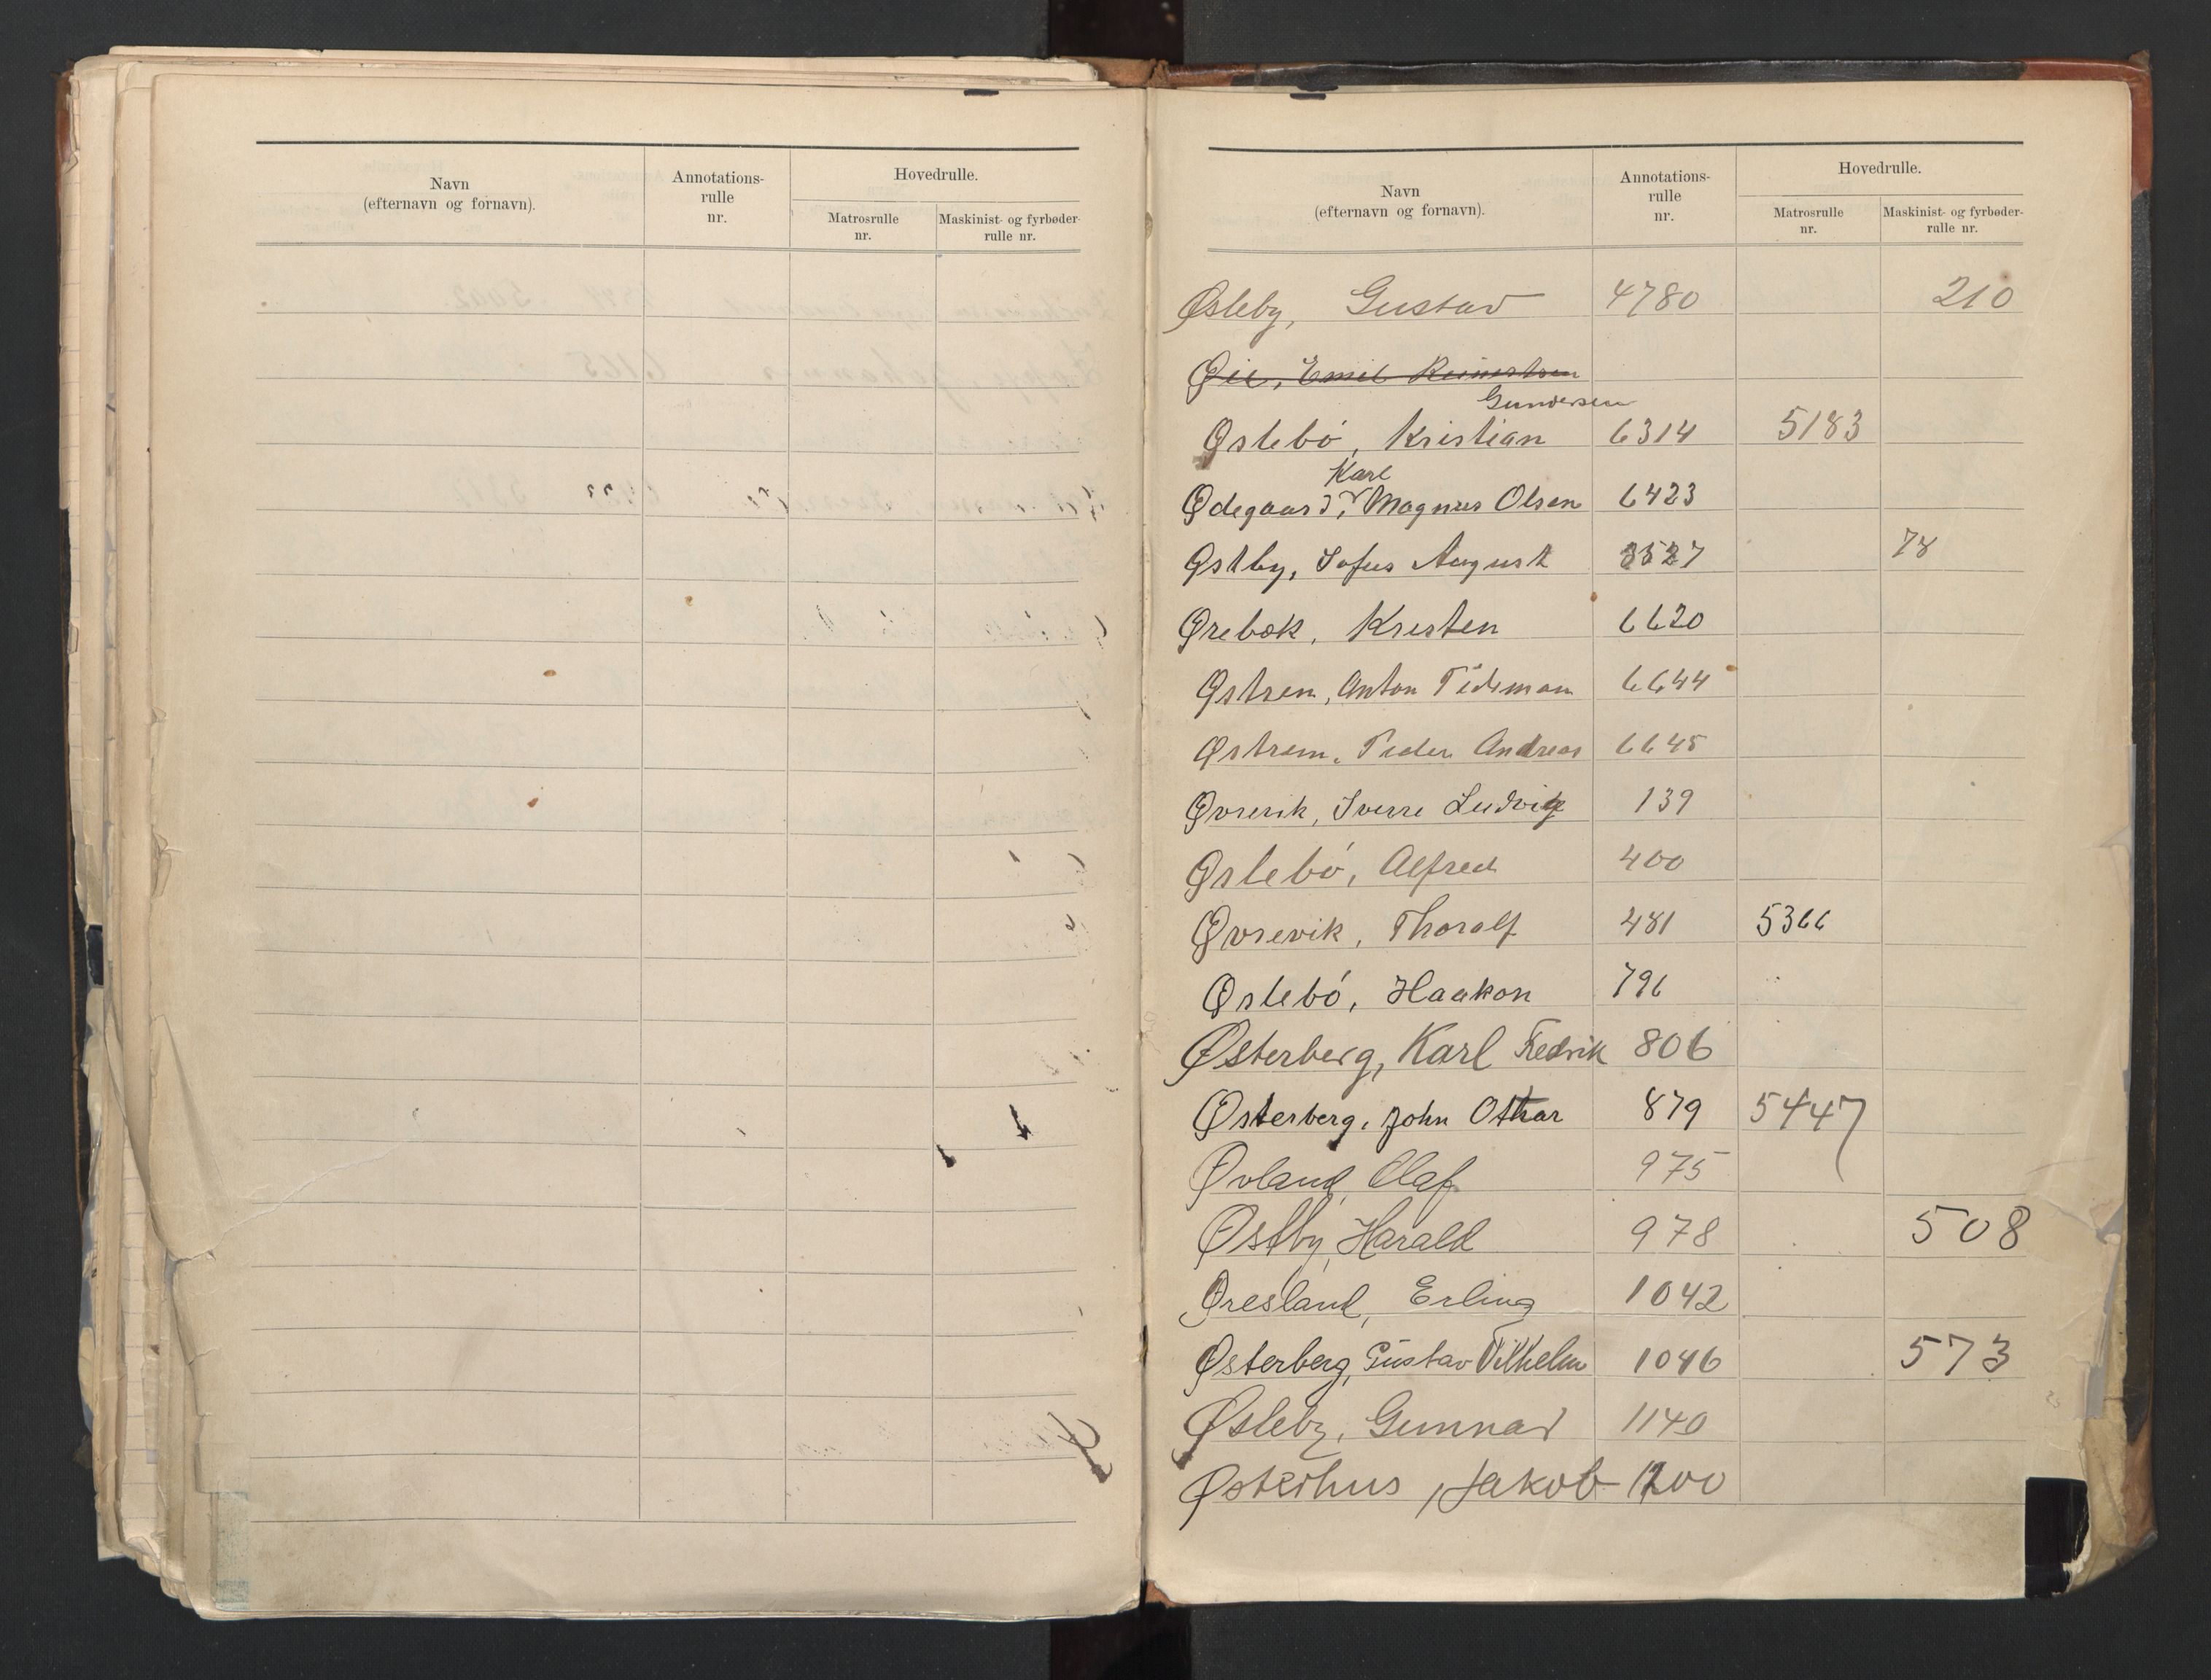 Navn
(efternavn og fornavn).
Annotations-
rulle
nr.
Hovedrulle.
Matrosrulle
nr.
Maskinist- og fyrbøder-
rulle nr.
Navn
(efternavn og fornavn).
Annotations-
rulle
nr.
Hovedrulle.
Matrosrulle
nr.
Maskinist- og fyrbøder-
rulle nr.
Østeby, Gustav 4780 210
Øie, Emil
Gundersen
Østebó, Kristian 6314 5183
Karl
Ødegaard, Magnus Olsen 6423
Østby, Sofus August 3527 78
Ørebæk, Kresten 6620
Østrem, Anton Tideman 6644
Østrem, Peder Andreas 6645
Øvrevik, Sverre Ludvig 139
Østebó, Alfred 400
Øvrevik, Thoralf 481 5366
Østebó, Haakon 796
Østerberg, Karl Fredrik 806
Østerberg, John Othar 879 5447
Øvland, Olaf 975
Østby, Harald 978 508
Øresland, Erling 1042
Østerberg, Gustav Vilhelm 1046 573
Østeby, Gunnar 1140
Østerhus, Jakob 1200